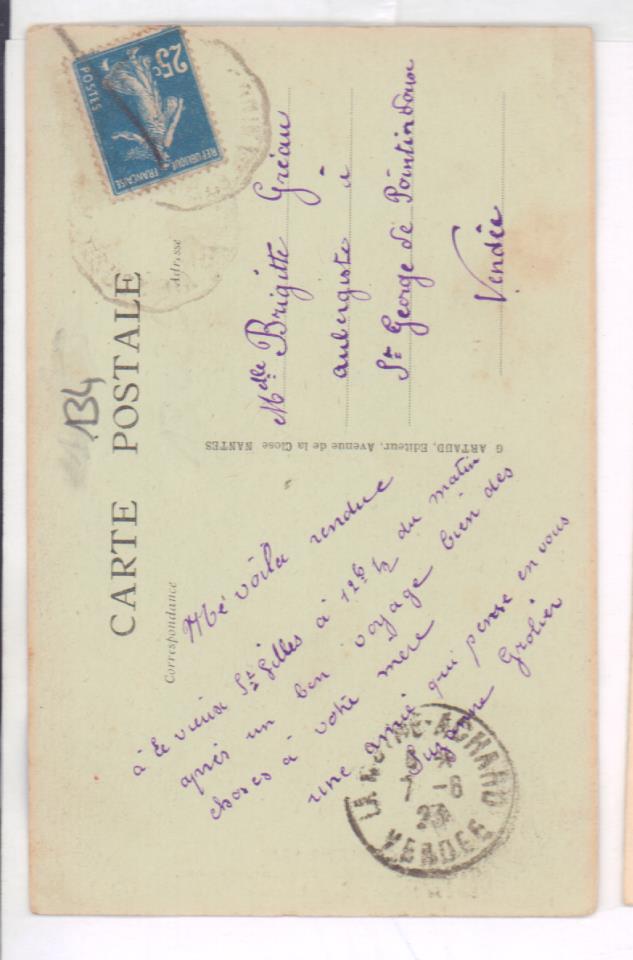 CARTE POSTALE
Correspondance
Adresse
134
25c
POSTES
REPUBLIQUE FRANCAISE
Me voila rendue
à le vieux St Gilles à 12h ½ du matin
après un bon voyage bien des
choses à votre mere
une amie qui pense en vous
Suzanne Grolier
G ARTAUD, Editeur, Avenue de la Close NANTES
Mdlle Brigitte Gréau
aubergiste à
St George de Pointindoux
Vendée
LA MOTHE-ACHARD
7 -6
23
VENDEE